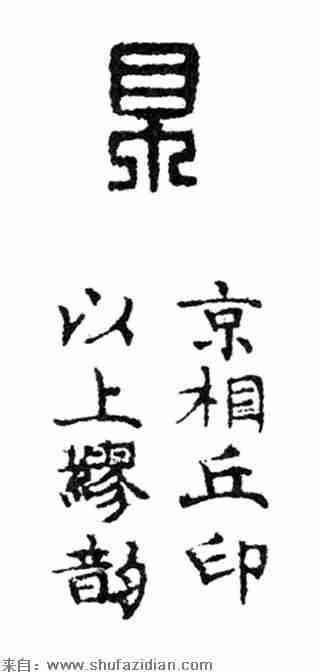 京
京相丘印
以上繆韵
来自：www.shufazidian.com